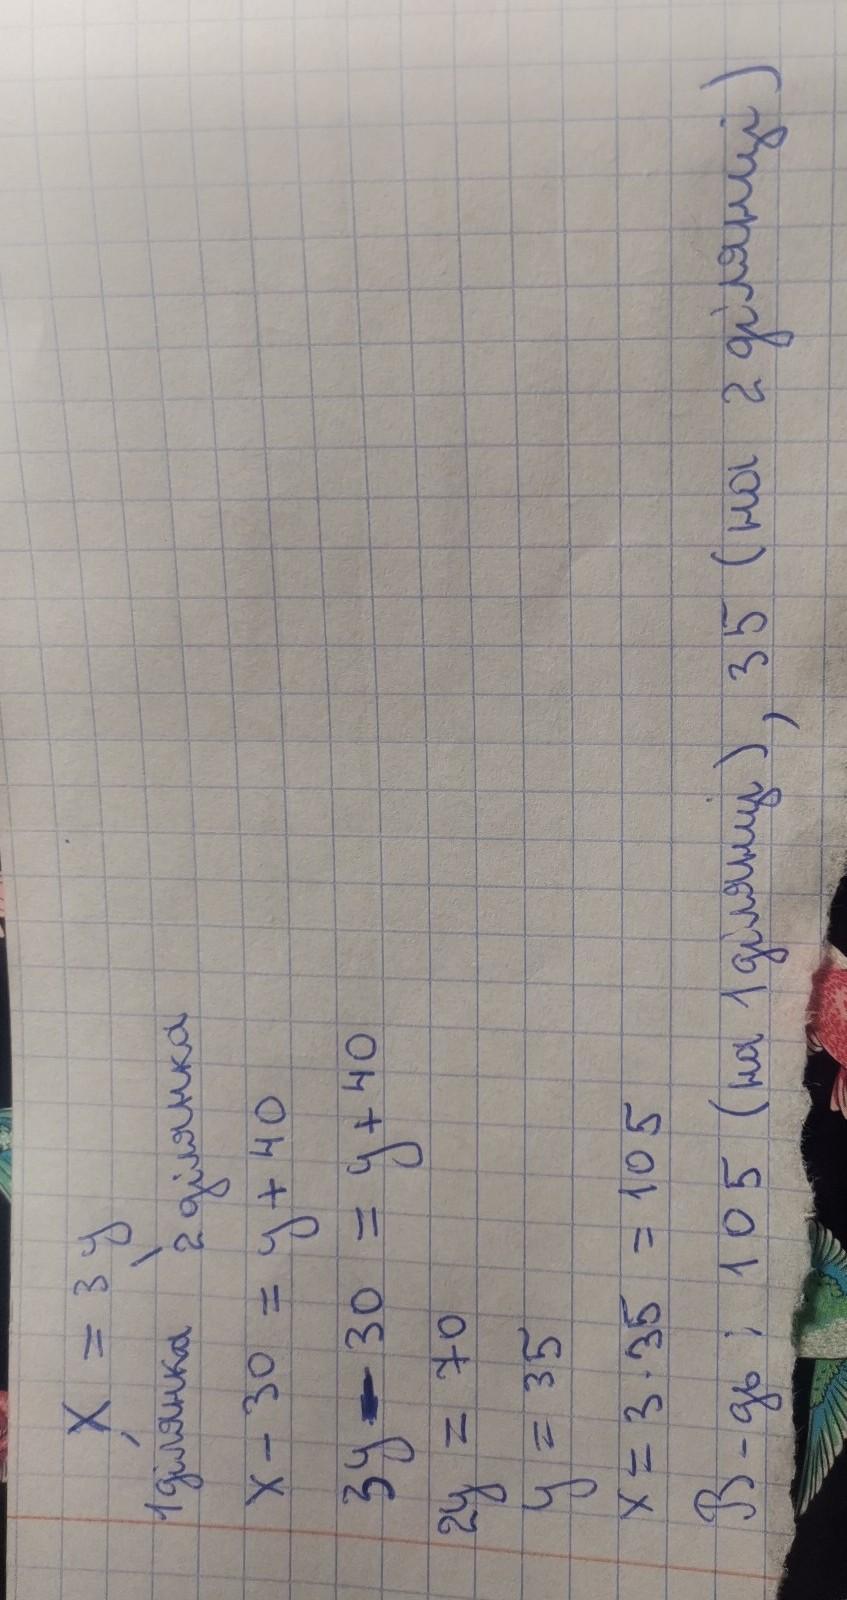 x = 3y
1 ділянка 2 ділянка
x - 30 = y + 40
3y - 30 = y + 40
2y = 70
y = 35
x = 3 · 35 = 105
В-дь: 105 (на 1 ділянці), 35 (на 2 ділянці)